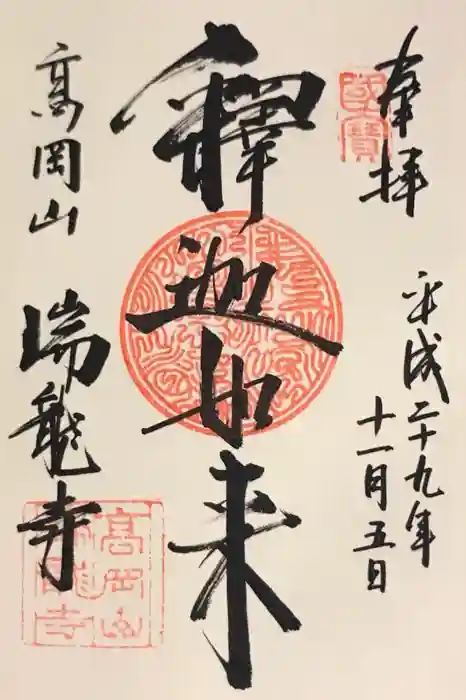 奉拝
國寳
平成二十九年
十一月五日
釋迦如来
高岡山
瑞龍寺
高岡山
瑞龍寺